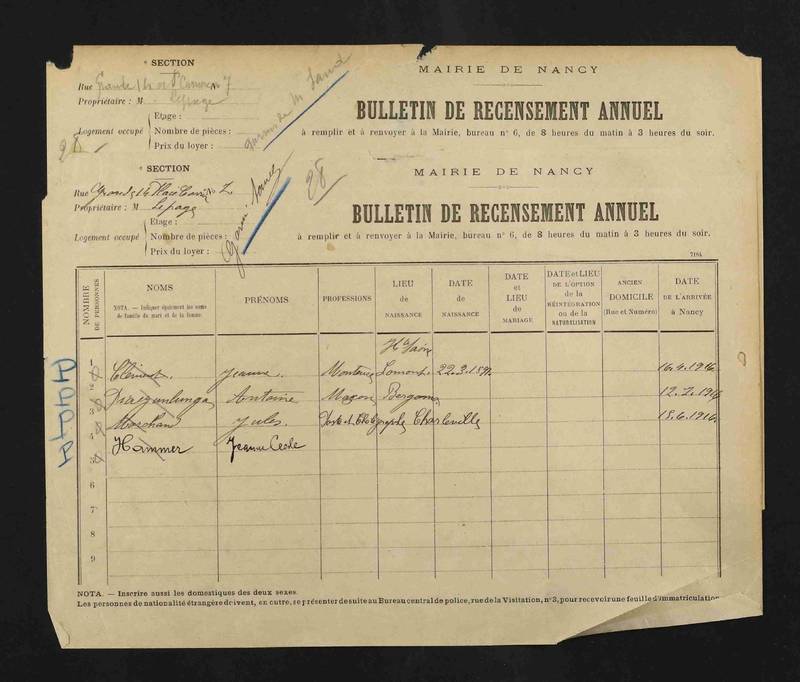 * SECTION
MAIRIE DE NANCY
Rue
Propriétaire : M Lepage
BULLETIN DE RECENSEMENT ANNUEL
Etage :
Logement occupé
Nombre de pièces :
à remplir et à renvoyer à la Mairie, bureau n° 6, de 8 heures du matin à 3 heures du soir.
Prix du loyer :
28
* SECTION
MAIRIE DE NANCY
28
Rue
Propriétaire : M Lepage
BULLETIN DE RECENSEMENT ANNUEL
Etage :
Logement occupé
Nombre de pièces :
à remplir et à renvoyer à la Mairie, bureau n° 6, de 8 heures du matin à 3 heures du soir.
Prix du loyer :
7184
NOMBRE DE PERSONNES
NOMS
NOTA. — Indiquer également les noms de famille du mari et de la femme.
PRÉNOMS
PROFESSIONS
LIEU de NAISSANCE
DATE de NAISSANCE
DATE et LIEU de MARIAGE
DATE et LIEU DE L'OPTION de la RÉINTÉGRATION ou de la NATURALISATION
ANCIEN DOMICILE (Rue et Numéro)
DATE DE L'ARRIVÉE à Nancy
Hte Saône
1 Clément. Jeanne. Lomont. 16.4.1916
2 Antoine Maçon 12.2.1916
3 Jules Charleville 18.6.1916
4 Hammer Jeanne
5
6
7
8
9
NOTA. — Inscrire aussi les domestiques des deux sexes.
Les personnes de nationalité étrangère doivent, en outre, se présenter de suite au Bureau central de police, rue de la Visitation, n° 3, pour recevoir une feuille d'immatriculation